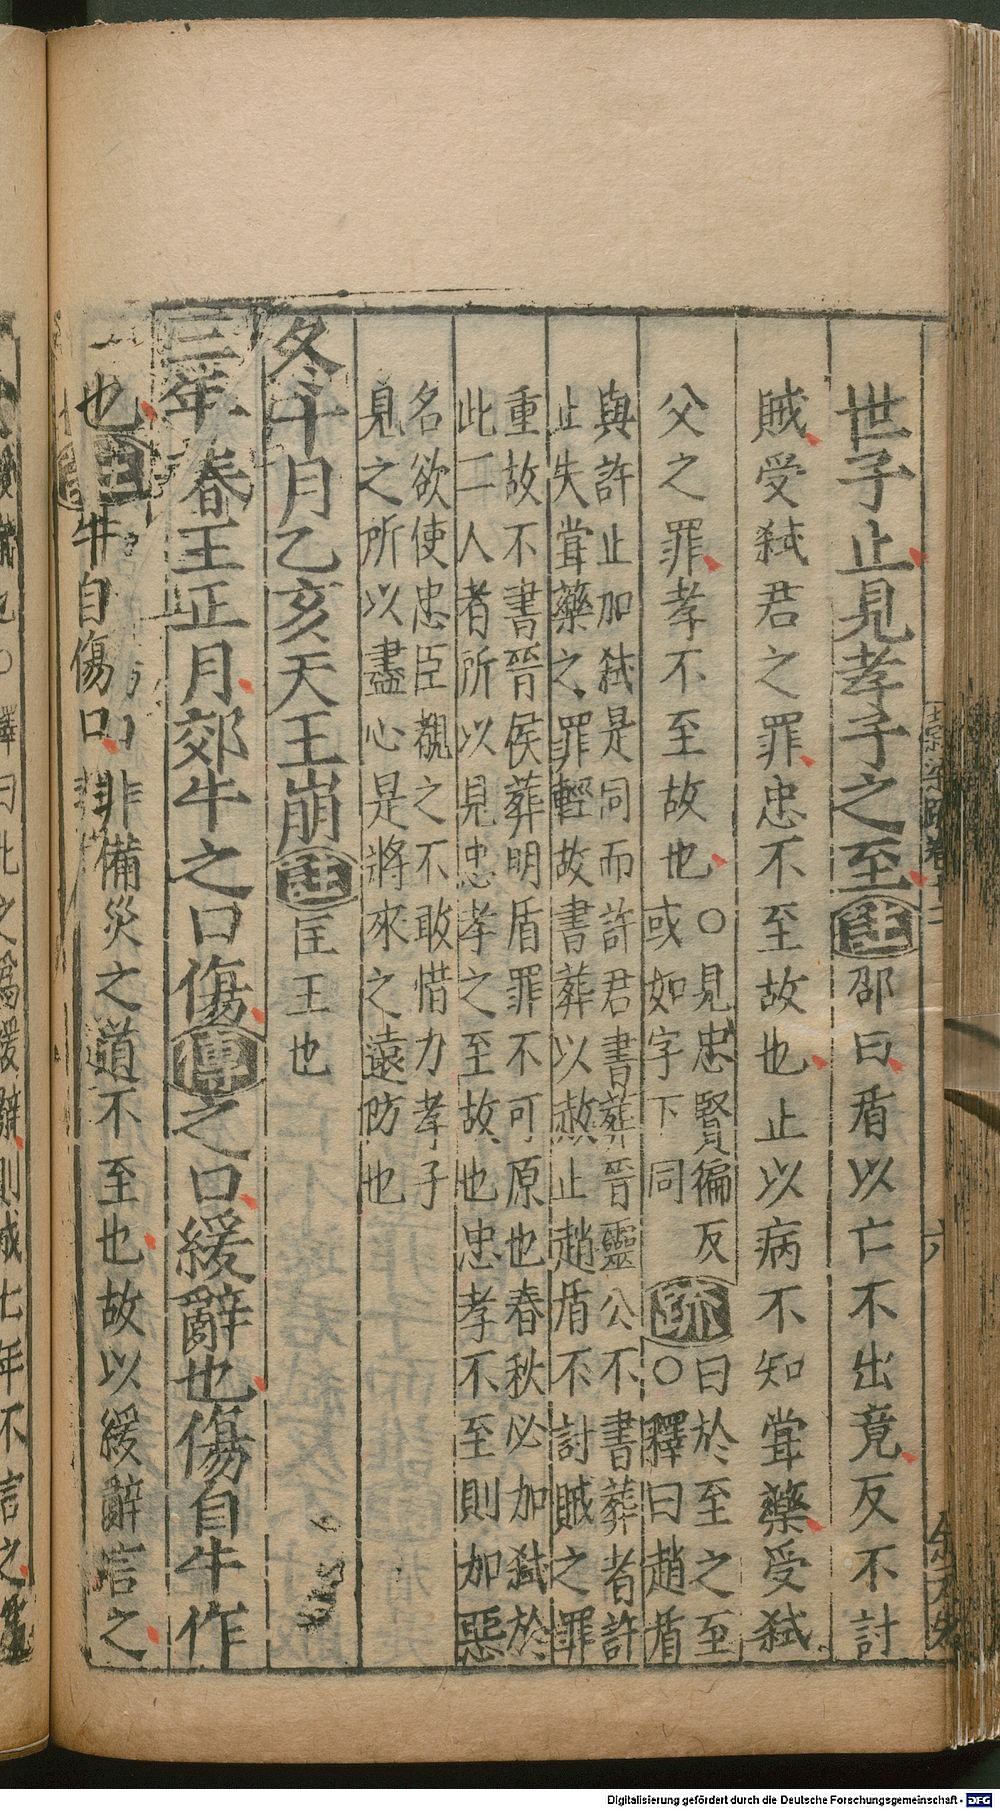 世子止見孝子之至注邵曰盾以亡不出竟反不討
賊受弑君之罪忠不至故也止以病不知嘗藥受弑
父之罪孝不至故也○見忠賢徧反
或如字下同
疏曰於至之至
○釋曰趙盾
與許止加弑是同而許君書葬晉靈公不書葬者許
止失甞藥之罪輕故書葬以赦止趙盾不討賊之罪
重故不書晉侯葬明盾罪不可原也春秋必加弑於
此二人者所以見忠孝之至故也忠孝不至則加惡
名欲使忠臣覩之不敢惜力孝子
見之所以盡心是將來之遠防也
冬十月乙亥天王崩注匡王也
三年春王正月郊牛之口傷傳之口緩辭也傷自牛作
也注牛自傷口非備災之道不至也故以緩辭言之
六
Digitalisierung gefördert durch die Deutsche Forschungsgemeinschaft - DFG